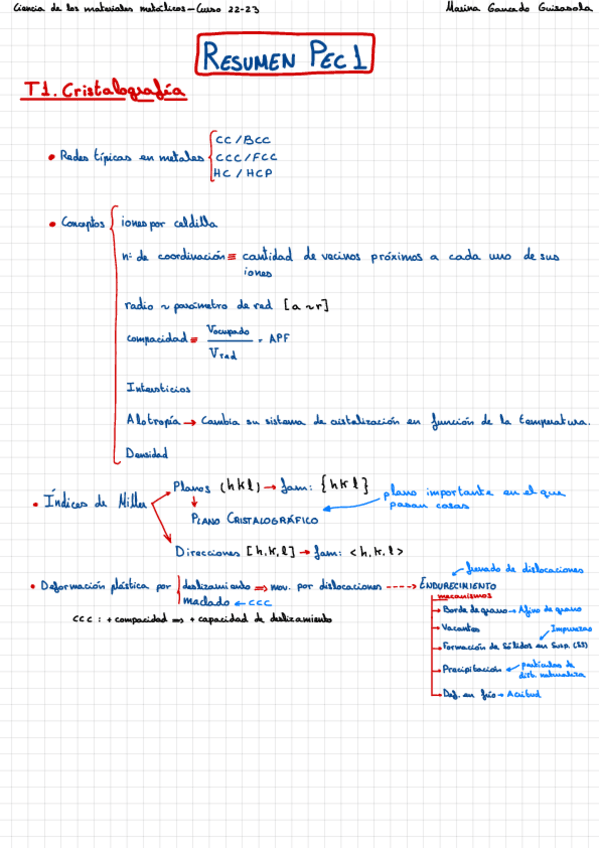 Ciencia de los materiales metálicos - Curso 22-23
Marina Gancedo Guisasola
RESUMEN PEC 1
T1. Cristalografía
• Redes típicas en metales { CC / BCC
CCC / FCC
HC / HCP
• Conceptos { iones por celdilla
nº de coordinación ≡ cantidad de vecinos próximos a cada uno de sus
iones
radio ~ parámetro de red [a ~ r]
compacidad ≡ Vocupado / Vred = APF
Intersticios
Alotropía → Cambia su sistema de cistalización en función de la temperatura.
Densidad
• Índices de Miller
Planos (h k l) → fam: {h k l}
plano importante en el que
pasan cosas
PLANO CRISTALOGRÁFICO
Direcciones [h, k, l] → fam: <h, k, l>
frenado de dislocaciones
• Deformación plástica por { deslizamiento ⇒ mov. por dislocaciones ----> ENDURECIMIENTO
maclado ← CCC
mecanismos
CCC : + compacidad ⇒ + capacidad de deslizamiento
→ Borde de grano → Afino de grano
→ Vacantes
Impurezas
→ Formación de Sólidos en Susp. (SS)
→ Precipitación ← partículas de
dist. naturaleza
→ Def. en frío → Acritud